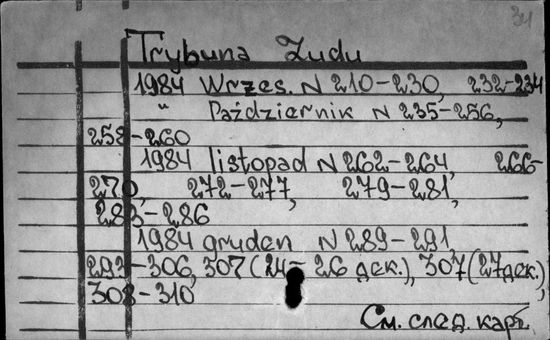 34
Trybuna Ludu
1984 Wrzes. N 210-230, 232-234
" Październik N 235-256,
258-260
1984 listopad N 262-264, 266-
270, 272-277, 279-281,
283-286
1984 gruden N 289-291,
293-306, 307 (24-26 дек.), 307 (27 дек.)
308-310
См. след. карт.